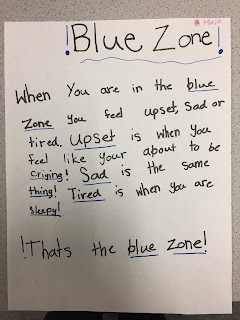 Maia
!Blue Zone!
When you are in the blue
Zone you feel upset, sad or
tired. Upset is when you
feel like your about to be
Criying! Sad is the same
thing! Tired is when you are
sleepy!
!Thats the blue zone!